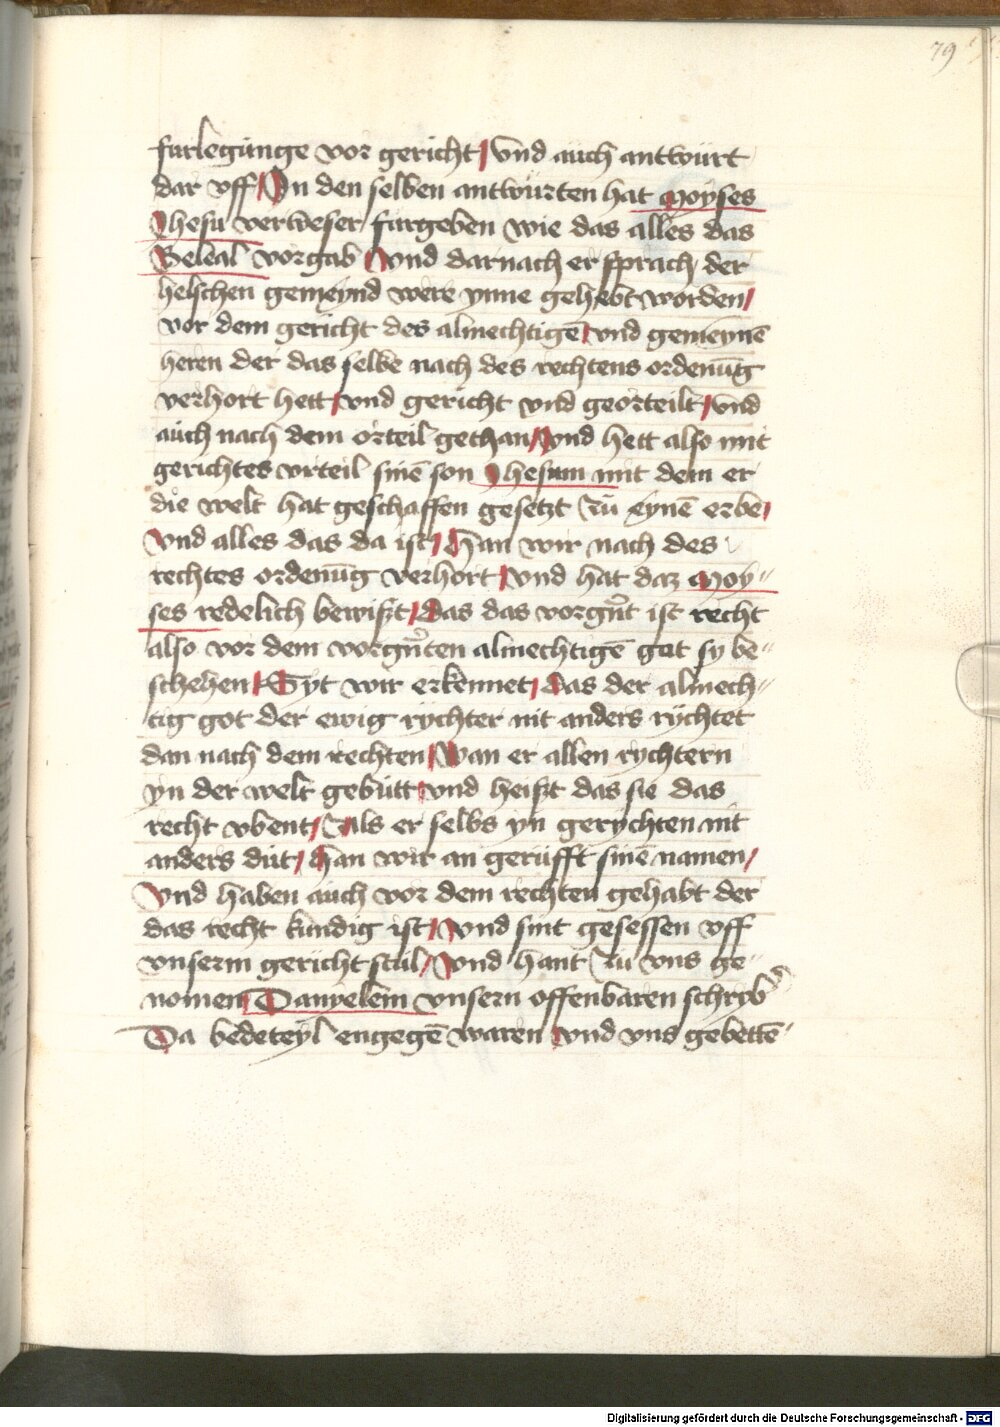 79
furlegunge vor gericht / vnd auch antwurt
dar vff / In den selben antwurten hat Moyses
Jhesu verweser furgeben wie das alles das
Beleal vorgab / vnd darnach er sprach der
helschen gemeynd were ynne gehebt worden /
vor dem gericht des almechtigē / vnd gemeynē
heren der das selbe nach des rechtens ordenūg
verhort hett / vnd gericht vnd georteilt / vnd
auch nach dem orteil gethan / vnd hett also mit
gerichtes vrteil sinē son Jhesum mit dem er
die welt hat geschaffen gesetzt zu eynē erbe /
vnd alles das da ist / Han wir nach des
rechtes ordenūg verhort / vnd hat daz Moy"
ses redelich bewist / das das vorgn̄t ist recht
also vor dem vorgn̄ten almechtigē got sy be"
schehen / Syt wir erkennet / das der almech"
tig got der ewig rychter nit anders rychtet
dan nach dem rechten / Wan er allen rychtern
yn der welt gebutt / vnd heist das sie das
recht vbent / Als er selbs yn gerychten nit
anders dut / Han wir an gerufft sinē namen /
Vnd haben auch vor dem rechten gehabt der
das recht kundig ist / vnd sint gesessen vff
vnserm gericht stul / vnd hant zu vns ge"
nomen Danyelem vnsern offenbaren schryb̄
Da bedeteyl engegē waren vnd vns gebettē
Digitalisierung gefördert durch die Deutsche Forschungsgemeinschaft - DFG